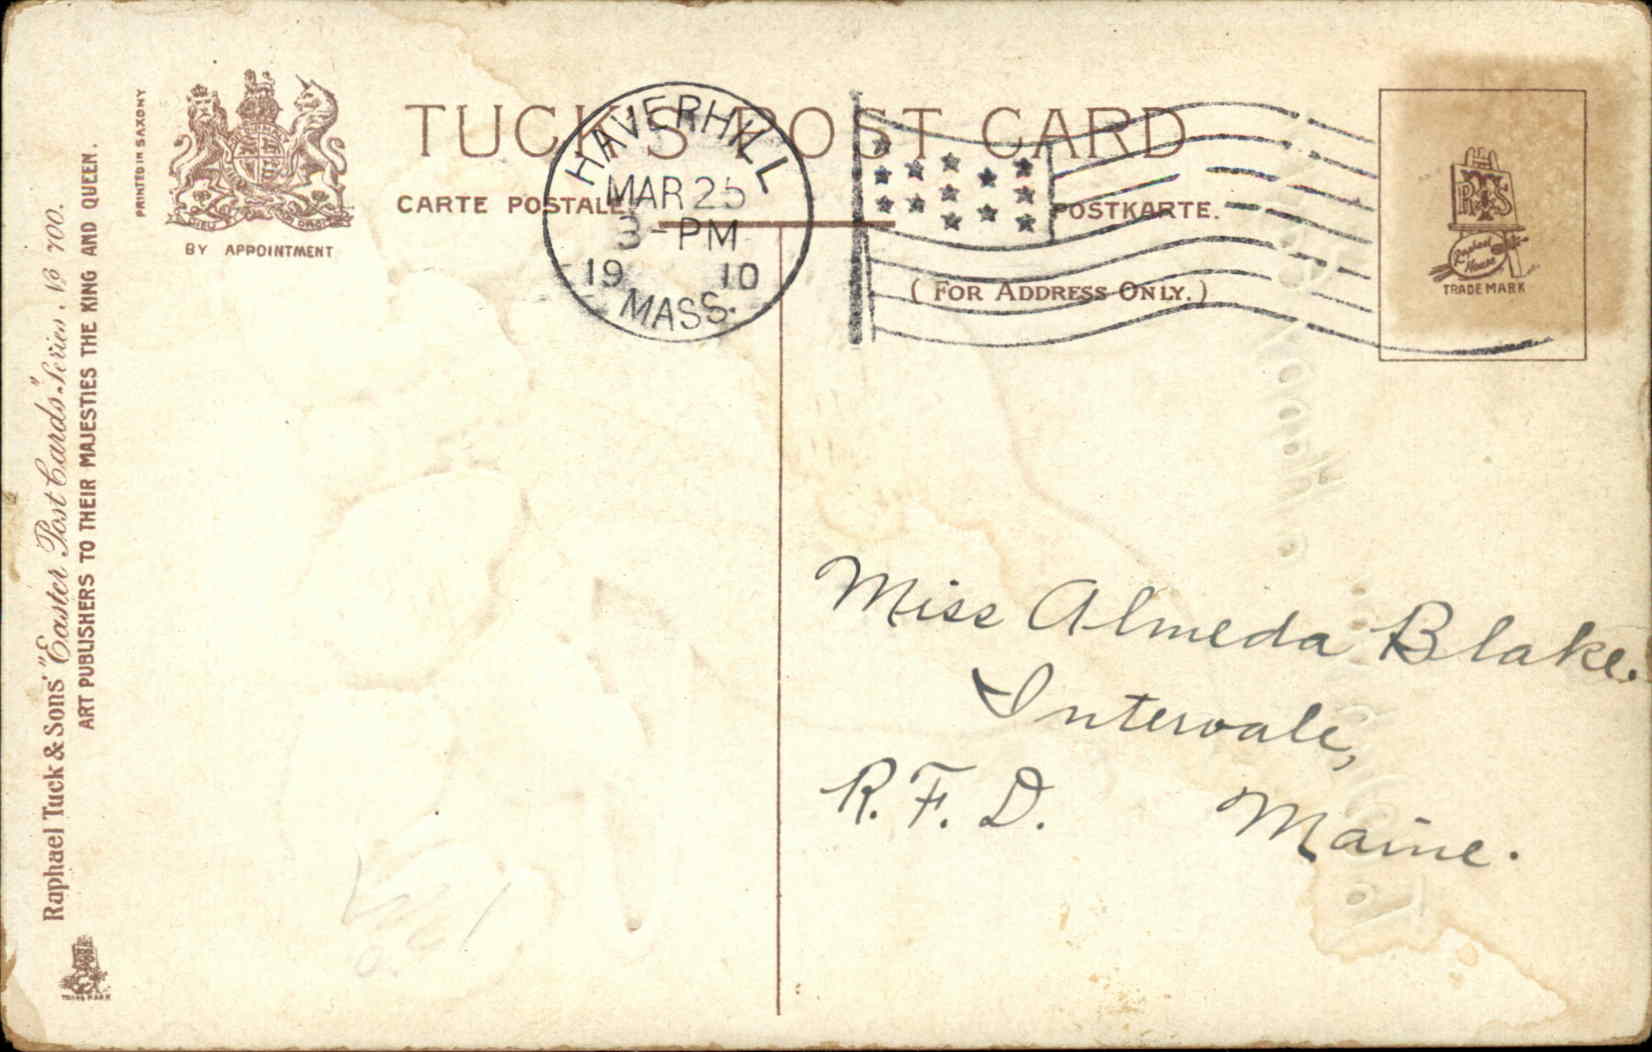 TUCK'S POST CARD
CARTE POSTALE.
POSTKARTE.
( FOR ADDRESS ONLY. )
HAVERHILL
MAR 25
3-PM
1910
MASS.
PRINTED IN SAXONY
DIEU
BY APPOINTMENT
RTS
Raphael House
TRADE MARK
Raphael Tuck & Sons' "Easter Post Cards" Series, No 700.
ART PUBLISHERS TO THEIR MAJESTIES THE KING AND QUEEN.
TRADE MARK
Miss Almeda Blake.
Intervale,
R.F.D. Maine.